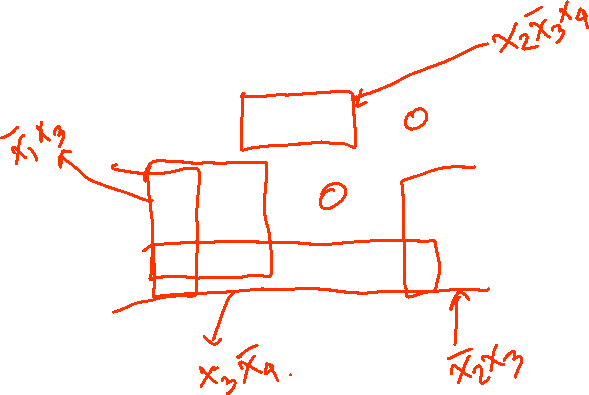 x₂x̄₃x₄
0
x̄₁x₃
0
x₃x̄₄.
x̄₂x₃